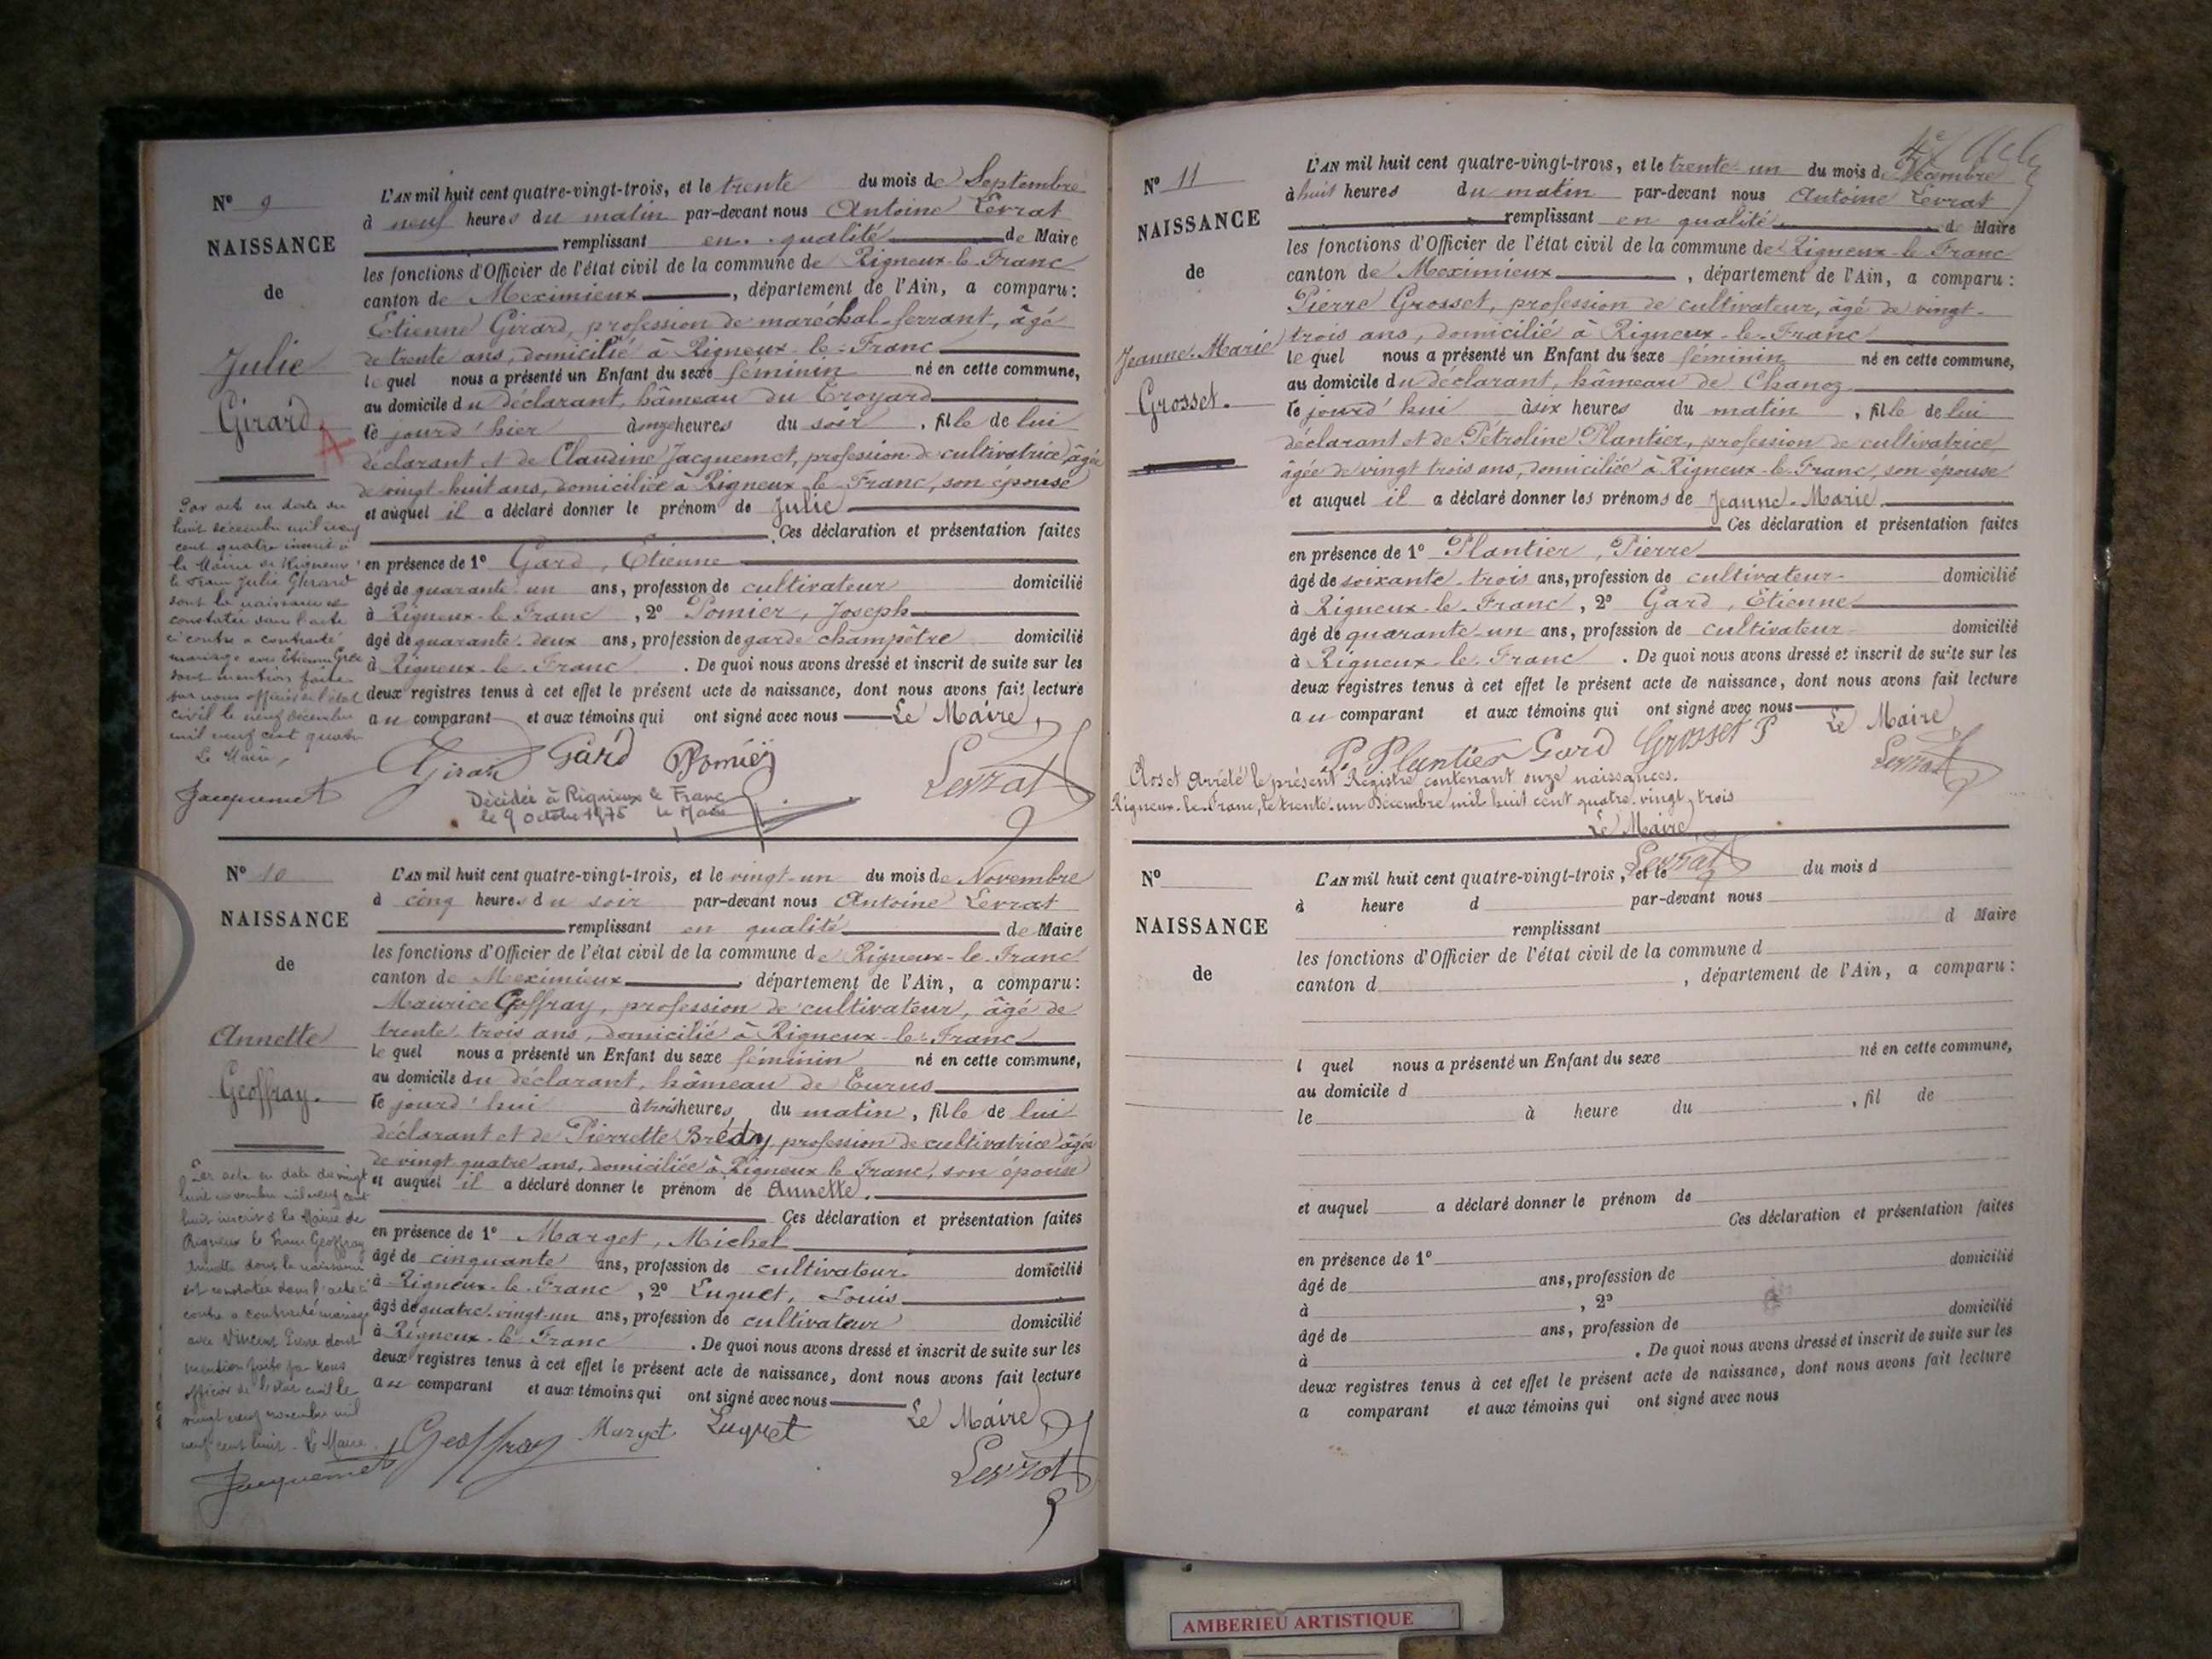 N° 9
NAISSANCE
de
Julie
Girard
A
L'AN mil huit cent quatre-vingt-trois, et le trente du mois de Septembre
à neuf heures du matin par-devant nous Antoine Levrat
remplissant en qualité de Maire
les fonctions d'Officier de l'état civil de la commune de Rigneux-le-Franc
canton de Meximieux, département de l'Ain, a comparu:
Etienne Girard, profession de maréchal-ferrant, âgé
de trente ans, domicilié à Rigneux-le-Franc
le quel nous a présenté un Enfant du sexe féminin né en cette commune,
au domicile du déclarant, hâmeau du Troyard
le jourd'hier à onze heures du soir, fille de lui
déclarant et de Claudine Jacquemet, profession de cultivatrice, âgée
de vingt-huit ans, domiciliée à Rigneux-le-Franc, son épouse
et auquel il a déclaré donner le prénom de Julie
Ces déclaration et présentation faites
en présence de 1° Gard, Etienne
âgé de quarante-un ans, profession de cultivateur domicilié
à Rigneux-le-Franc, 2° Pomier, Joseph
âgé de quarante-deux ans, profession de garde champêtre domicilié
à Rigneux-le-Franc. De quoi nous avons dressé et inscrit de suite sur les
deux registres tenus à cet effet le présent acte de naissance, dont nous avons fait lecture
au comparant et aux témoins qui ont signé avec nous Le Maire,
Girard Gard Pomier Levrat
Décédée à Rigneux le Franc
le 9 octobre 1975 le Maire
Par acte en date du
huit décembre mil neuf
cent quatre inscrit à
la Mairie de Rigneux
le Franc Julie Girard
dont la naissance est
constatée dans l'acte
ci contre a contracté
mariage avec Etienne
dont mention faite
par nous officier de l'état
civil le neuf décembre
mil neuf cent quatre
Le Maire,
Jacquemet
N° 10
NAISSANCE
de
Annette
Geoffray.
L'AN mil huit cent quatre-vingt-trois, et le vingt-un du mois de Novembre
à cinq heures du soir par-devant nous Antoine Levrat
remplissant en qualité de Maire
les fonctions d'Officier de l'état civil de la commune de Rigneux-le-Franc
canton de Meximieux, département de l'Ain, a comparu:
Maurice Goffray, profession de cultivateur, âgé de
trente-trois ans, domicilié à Rigneux-le-Franc
le quel nous a présenté un Enfant du sexe féminin né en cette commune,
au domicile du déclarant, hâmeau de Eurus
le jourd'hui à trois heures du matin, fille de lui
déclarant et de Pierrette Brédy, profession de cultivatrice, âgée
de vingt-quatre ans, domiciliée à Rigneux-le-Franc, son épouse
et auquel il a déclaré donner le prénom de Annette.
Ces déclaration et présentation faites
en présence de 1° Marget, Michel
âgé de cinquante ans, profession de cultivateur domicilié
à Rigneux-le-Franc, 2° Luguet, Louis
âgé de quatre-vingt-un ans, profession de cultivateur domicilié
à Rigneux-le-Franc. De quoi nous avons dressé et inscrit de suite sur les
deux registres tenus à cet effet le présent acte de naissance, dont nous avons fait lecture
au comparant et aux témoins qui ont signé avec nous Le Maire,
Geoffray Marget Luguet Levrat
Par acte en date du vingt
huit novembre mil neuf cent
huit inscrit à la Mairie de
Rigneux le Franc Geoffray
Annette dont la naissance
est constatée dans l'acte ci
contre a contracté mariage
avec Vincent Pierre dont
mention faite par nous
officier de l'état civil le
vingt neuf novembre mil
neuf cent huit. Le Maire
Jacquemet
N° 11
NAISSANCE
de
Jeanne-Marie
Grosset.
L'AN mil huit cent quatre-vingt-trois, et le trente-un du mois de Décembre
à huit heures du matin par-devant nous Antoine Levrat
remplissant en qualité de Maire
les fonctions d'Officier de l'état civil de la commune de Rigneux-le-Franc
canton de Meximieux, département de l'Ain, a comparu:
Pierre Grosset, profession de cultivateur, âgé de vingt-
trois ans, domicilié à Rigneux-le-Franc
le quel nous a présenté un Enfant du sexe féminin né en cette commune,
au domicile du déclarant, hâmeau de Chanoz
le jourd'hui à six heures du matin, fille de lui
déclarant et de Pétroline Plantier, profession de cultivatrice,
âgée de vingt trois ans, domiciliée à Rigneux-le-Franc, son épouse
et auquel il a déclaré donner les prénoms de Jeanne-Marie.
Ces déclaration et présentation faites
en présence de 1° Plantier, Pierre
âgé de soixante-trois ans, profession de cultivateur domicilié
à Rigneux-le-Franc, 2° Gard, Etienne
âgé de quarante-un ans, profession de cultivateur domicilié
à Rigneux-le-Franc. De quoi nous avons dressé et inscrit de suite sur les
deux registres tenus à cet effet le présent acte de naissance, dont nous avons fait lecture
au comparant et aux témoins qui ont signé avec nous Le Maire
P. Plantier Gard Grosset P Levrat
Clos et Arrêté le présent Registre contenant onze naissances.
Rigneux-le-Franc, le trente-un Décembre mil huit cent quatre-vingt-trois
Le Maire,
Levrat
N°
NAISSANCE
de
L'AN mil huit cent quatre-vingt-trois, et le du mois d
à heure d par-devant nous
remplissant d Maire
les fonctions d'Officier de l'état civil de la commune d
canton d , département de l'Ain, a comparu:
l quel nous a présenté un Enfant du sexe né en cette commune,
au domicile d
le à heure du , fil de
et auquel a déclaré donner le prénom de
Ces déclaration et présentation faites
en présence de 1° domicilié
âgé de ans, profession de
à , 2° domicilié
âgé de ans, profession de
à . De quoi nous avons dressé et inscrit de suite sur les
deux registres tenus à cet effet le présent acte de naissance, dont nous avons fait lecture
a comparant et aux témoins qui ont signé avec nous
AMBERIEU ARTISTIQUE